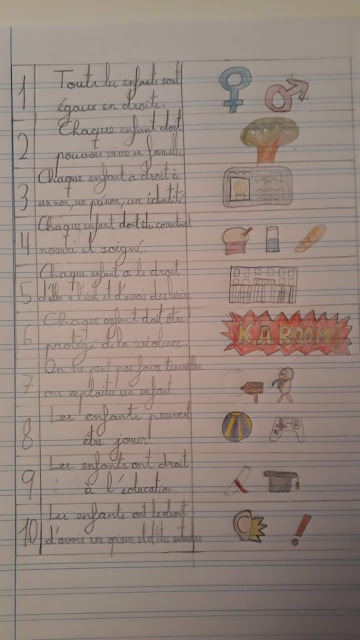 1 Tous les enfants sont
égaux en droits.
2 Chaque enfant doit
pouvoir vivre en famille
3 Chaque enfant a droit à
un nom, un prénom, une identité
4 Chaque enfant doit
nourri et soigné
5 Chaque enfant a le droit
et d'avoir des loisirs
6 Chaque enfant doit être
protégé de la violence.
KABOOM!
7 On ne peut pas faire travailler
ou exploiter un enfant.
8 Les enfants peuvent
être jouer
9 Les enfants ont droit
à l'éducation
10 Les enfants ont le droit
d'avoir une opinion et d'être